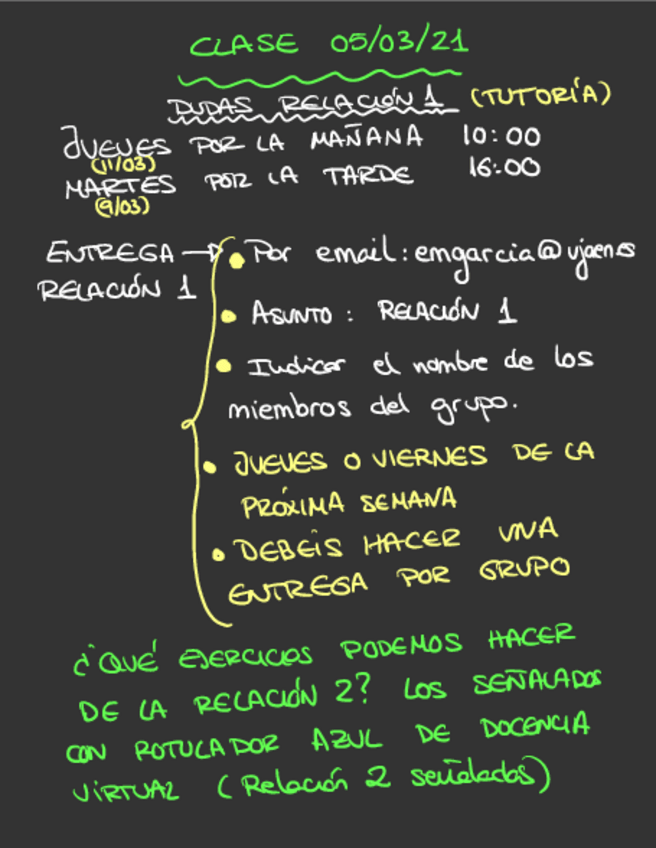 CLASE 05/03/21
DUDAS RELACIÓN 1 (TUTORÍA)
JUEVES POR LA MAÑANA 10:00
(11/03)
MARTES POR LA TARDE 16:00
(9/03)
ENTREGA → • Por email: emgarcia@ujaen.es
RELACIÓN 1
• ASUNTO: RELACIÓN 1
• Indicar el nombre de los
miembros del grupo.
• JUEVES O VIERNES DE LA
PRÓXIMA SEMANA
• DEBEIS HACER UNA
ENTREGA POR GRUPO
¿QUÉ EJERCICIOS PODEMOS HACER
DE LA RELACIÓN 2? LOS SEÑALADOS
CON ROTULADOR AZUL DE DOCENCIA
VIRTUAL (Relación 2 señalados)